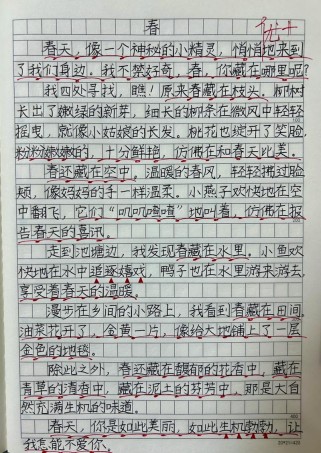 春
优+
春天，像一个神秘的小精灵，悄悄地来到
了我们身边。我不禁好奇，春，你藏在哪里呢？
我四处寻找，瞧！原来春藏在枝头。柳树
长出了嫩绿的新芽，细长的柳条在微风中轻轻
摇曳，就像小姑娘的长发。桃花也绽开了笑脸，
粉粉嫩嫩的，十分鲜艳，仿佛在和春天比美。
春还藏在空中。温暖的春风，轻轻拂过脸
颊，像妈妈的手一样温柔。小燕子欢快地在空
中翻飞，它们“叽叽喳喳”地叫着，仿佛在报
告春天的喜讯。
走到池塘边，我发现春藏在水里。小鱼欢
快地在水中追逐嬉戏，鸭子也在水里游来游去，
享受着春天的温暖。
漫步在乡间的小路上，我看到春藏在田间。
油菜花开了，金黄一片，像给大地铺上了一层
金色的地毯。
除此之外，春还藏在馥郁的花香中，藏在
青草的清香中，藏在泥土的芬芳中，那是大自
然充满生机的味道。
春天，你是如此美丽，如此生机勃勃，让
我怎能不爱你。